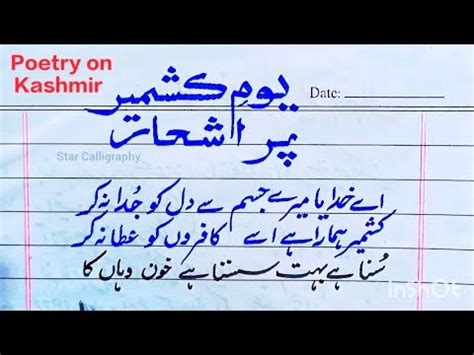 Poetry on
Kashmir
یومِ کشمیر
پر اشعار
Date:
Star Calligraphy
اے خدایا میرے جسم سے دل کو جُدا نہ کر
کشمیر ہمارا ہے اسے کافروں کو عطا نہ کر
سُنا ہے بہت سستا ہے خون وہاں کا
InShOt